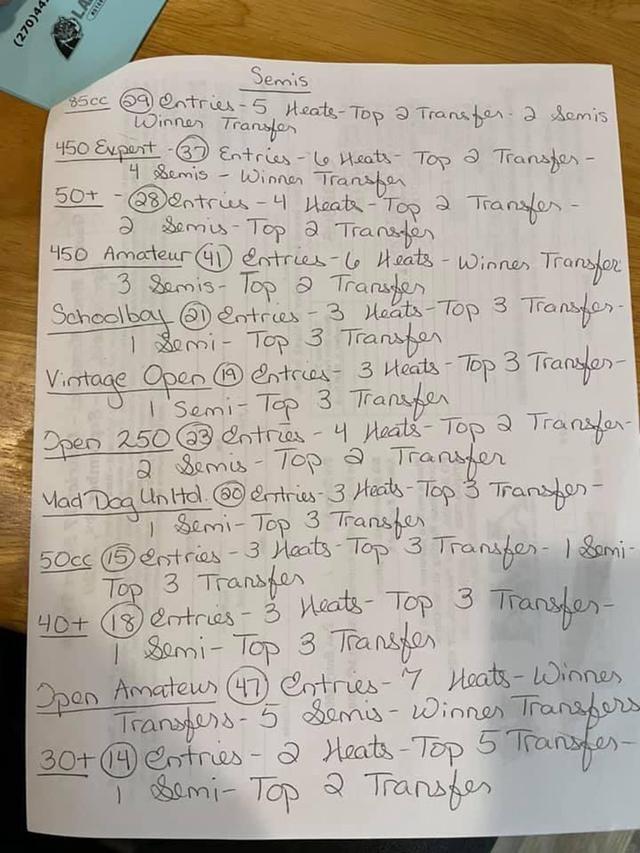 (270)44
LA
Semis
85cc (29) Entries - 5 Heats - Top 2 Transfer - 2 Semis
Winner Transfer
450 Expert - (37) Entries - 6 Heats - Top 2 Transfer -
4 Semis - Winner Transfer
50+ - (28) Entries - 4 Heats - Top 2 Transfer -
2 Semis - Top 2 Transfer
450 Amateur (41) Entries - 6 Heats - Winner Transfer
3 Semis - Top 2 Transfer
Schoolboy (21) Entries - 3 Heats - Top 3 Transfer -
1 Semi - Top 3 Transfer
Vintage Open (19) Entries - 3 Heats - Top 3 Transfer -
1 Semi - Top 3 Transfer
Open 250 (23) Entries - 4 Heats - Top 2 Transfer -
2 Semis - Top 2 Transfer
Mad Dog Unltd. (20) Entries - 3 Heats - Top 3 Transfer -
1 Semi - Top 3 Transfer
50cc (15) Entries - 3 Heats - Top 3 Transfer - 1 Semi -
Top 3 Transfer
40+ (18) Entries - 3 Heats - Top 3 Transfer -
1 Semi - Top 3 Transfer
Open Amateur (47) Entries - 7 Heats - Winner
Transfers - 5 Semis - Winner Transfers
30+ (14) Entries - 2 Heats - Top 5 Transfer -
1 Semi - Top 2 Transfer